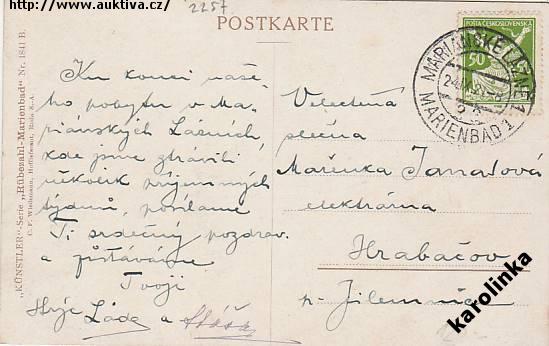 http://www.auktiva.cz/
2257
POSTKARTE
POŠTA ČESKOSLOVENSKÁ
50
MARIÁNSKÉ LÁZNĚ 1
MARIENBAD 1
"KÜNSTLER"-Serie "Rübezahl-Marienbad" Nr. 1841 B.
Ku konci naše-
ho pobytu v Ma-
riánských Lázních,
kde jsme ztrávili
několik příjemných
týdnů, posíláme
Ti srdečný pozdrav
a zůstáváme
Tvoji
Láďa a Stáša
Velectěná
slečna
Mařenka Janatová
elektrárna
Hrabačov
p. Jilemnice
karolinka